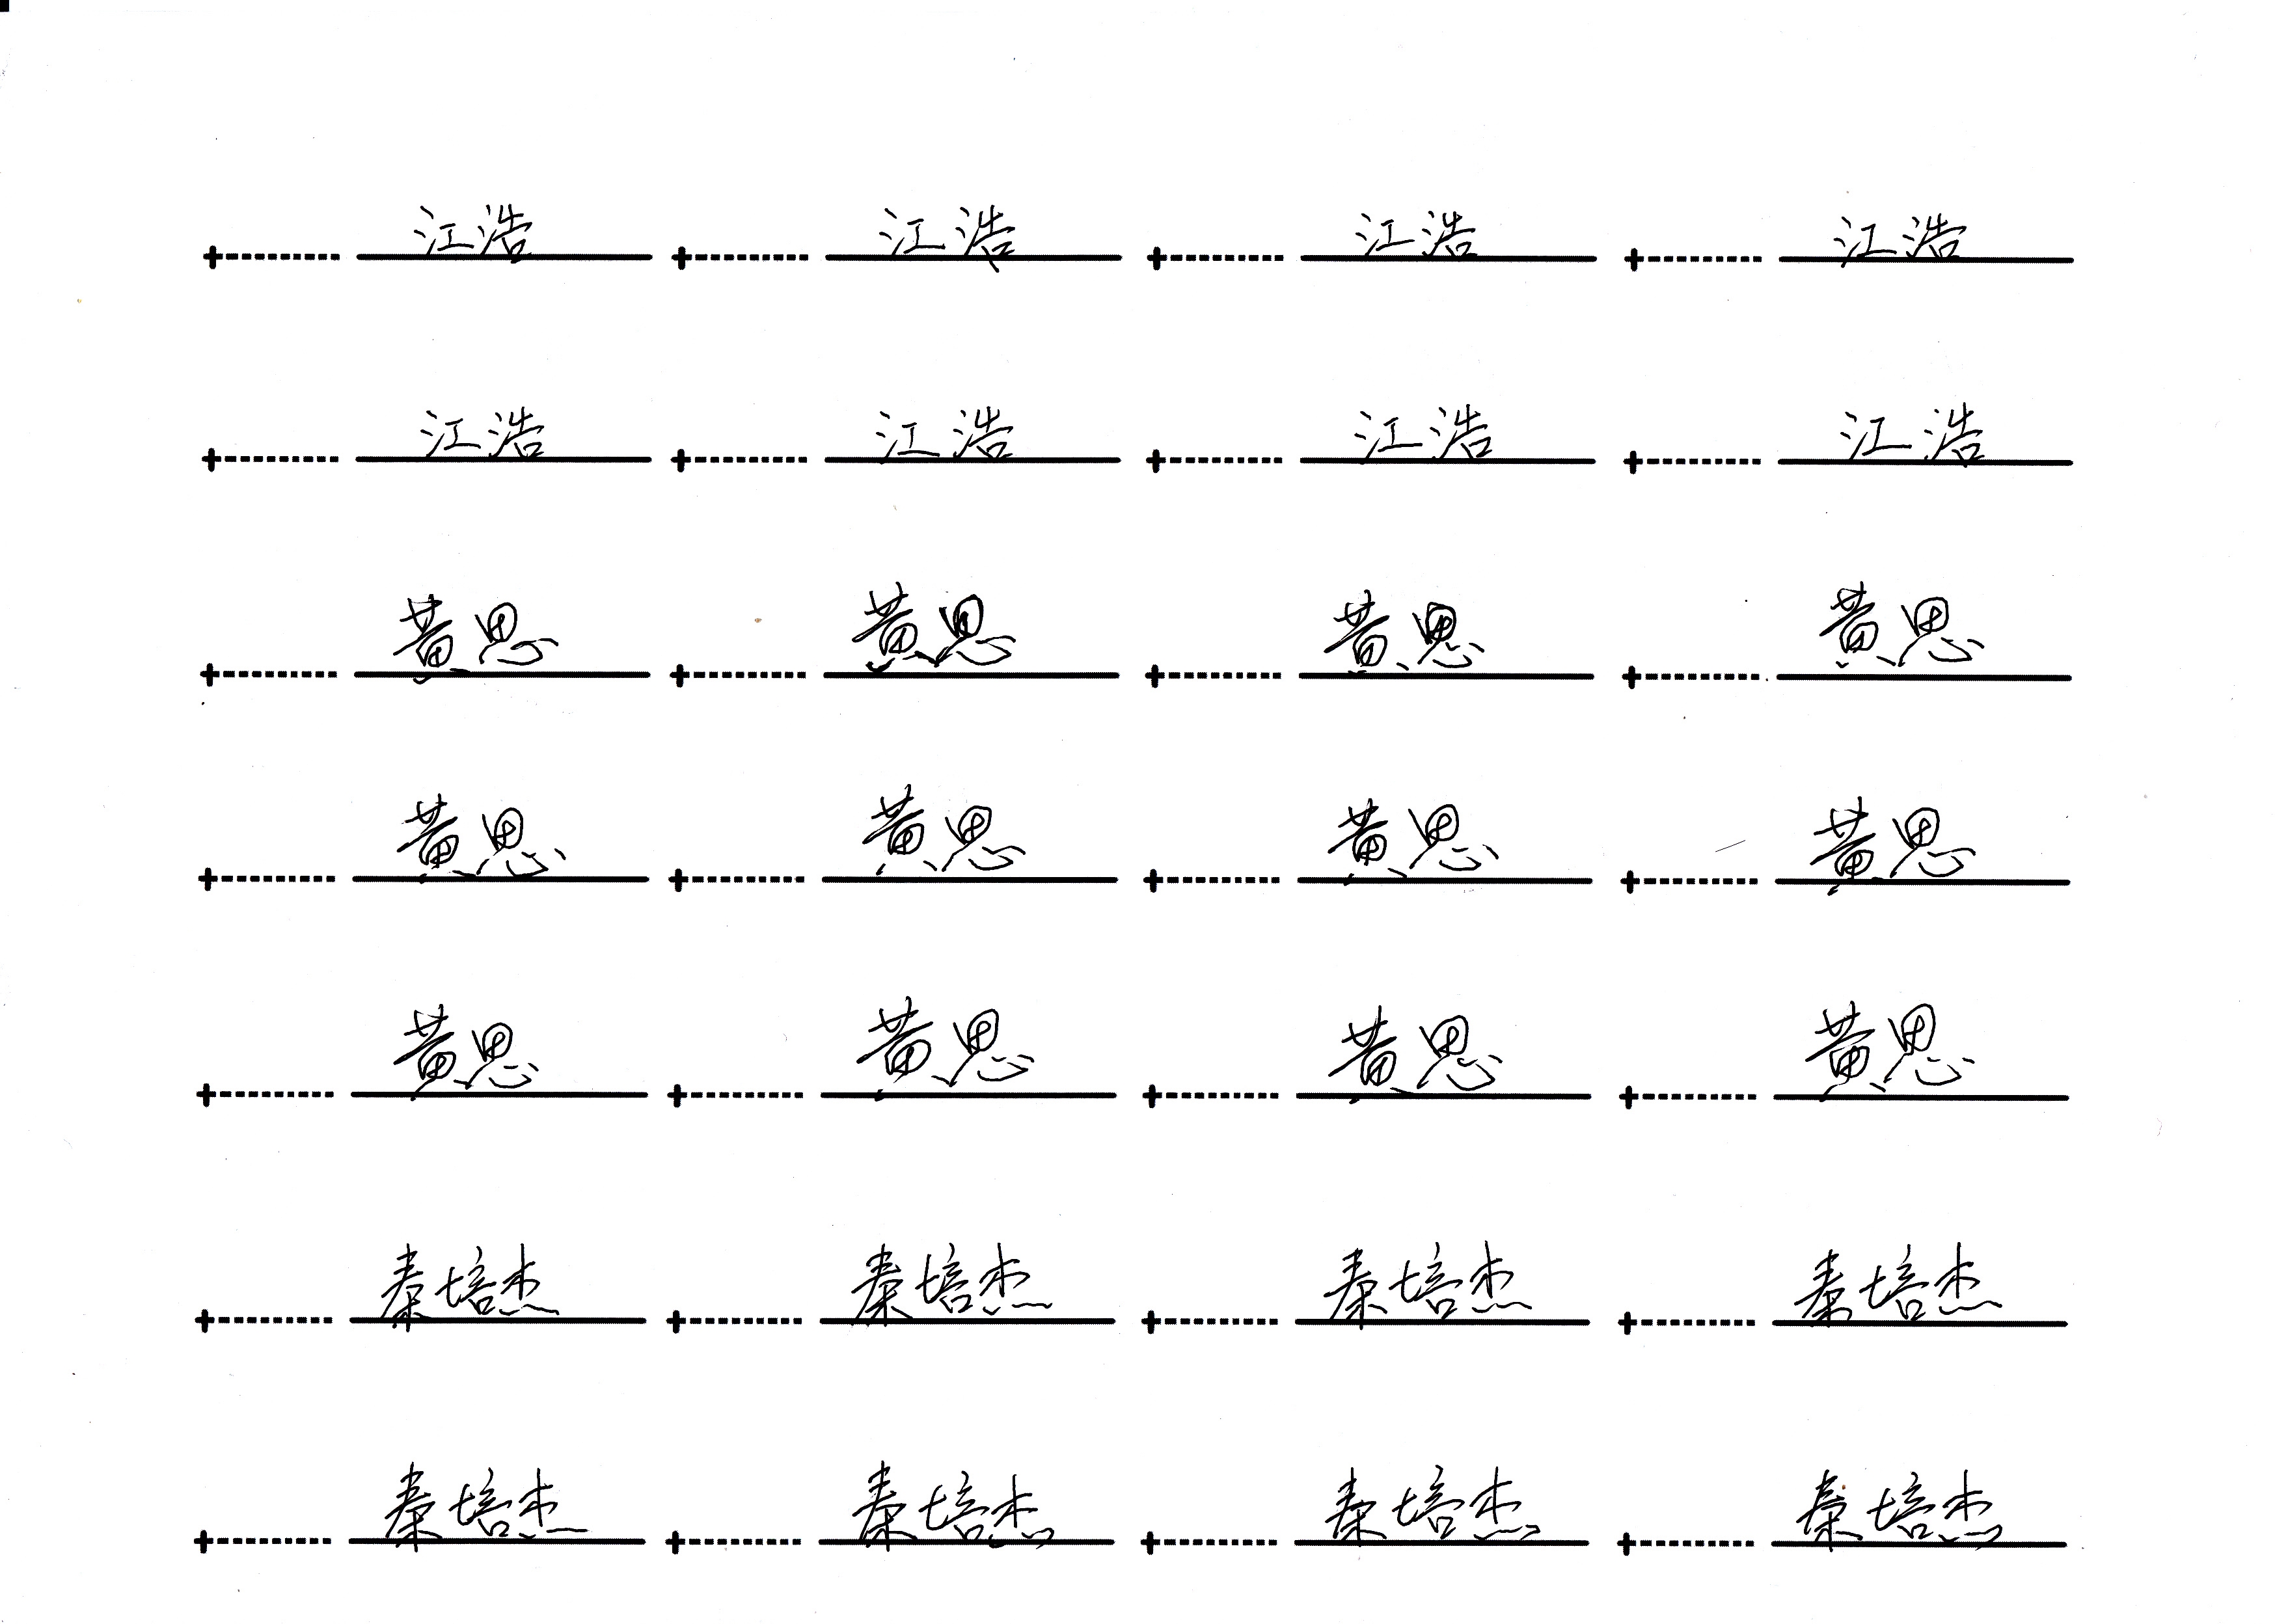 江浩 江浩 江浩 江浩
江浩 江浩 江浩 江浩
黄思 黄思 黄思 黄思
黄思 黄思 黄思 黄思
黄思 黄思 黄思 黄思
秦培杰 秦培杰 秦培杰 秦培杰
秦培杰 秦培杰 秦培杰 秦培杰